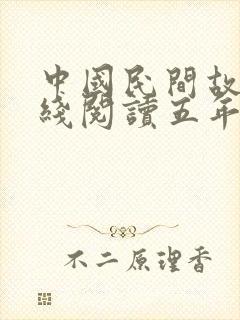 中國民間故
綫閱讀五年
不二原理香